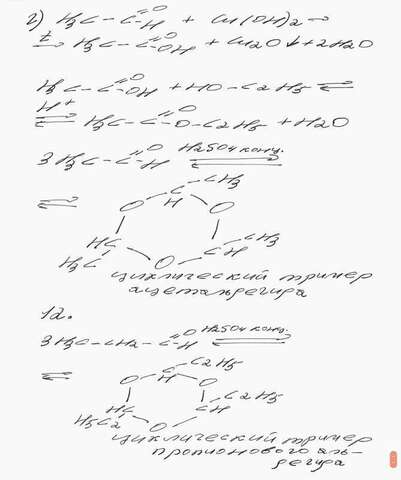 2) H3C - C =O H + Cu(OH)2 →
t → H3C - C =O OH + Cu2O↓ + 2H2O
H3C - C =O OH + HO - C2H5 ⇌
H+ ⇌ H3C - C =O O - C2H5 + H2O
3 H3C - C =O H H2SO4 конц. ⇌
⇌ O CH CH3 O
HC H3C O CH CH3
циклический тример
ацетальдегида
12.
3H3C - CH2 - C =O H H2SO4 конц. ⇌
⇌ O CH C2H5 O
HC H5C2 O CH C2H5
циклический тример
пропионового аль-
дегида